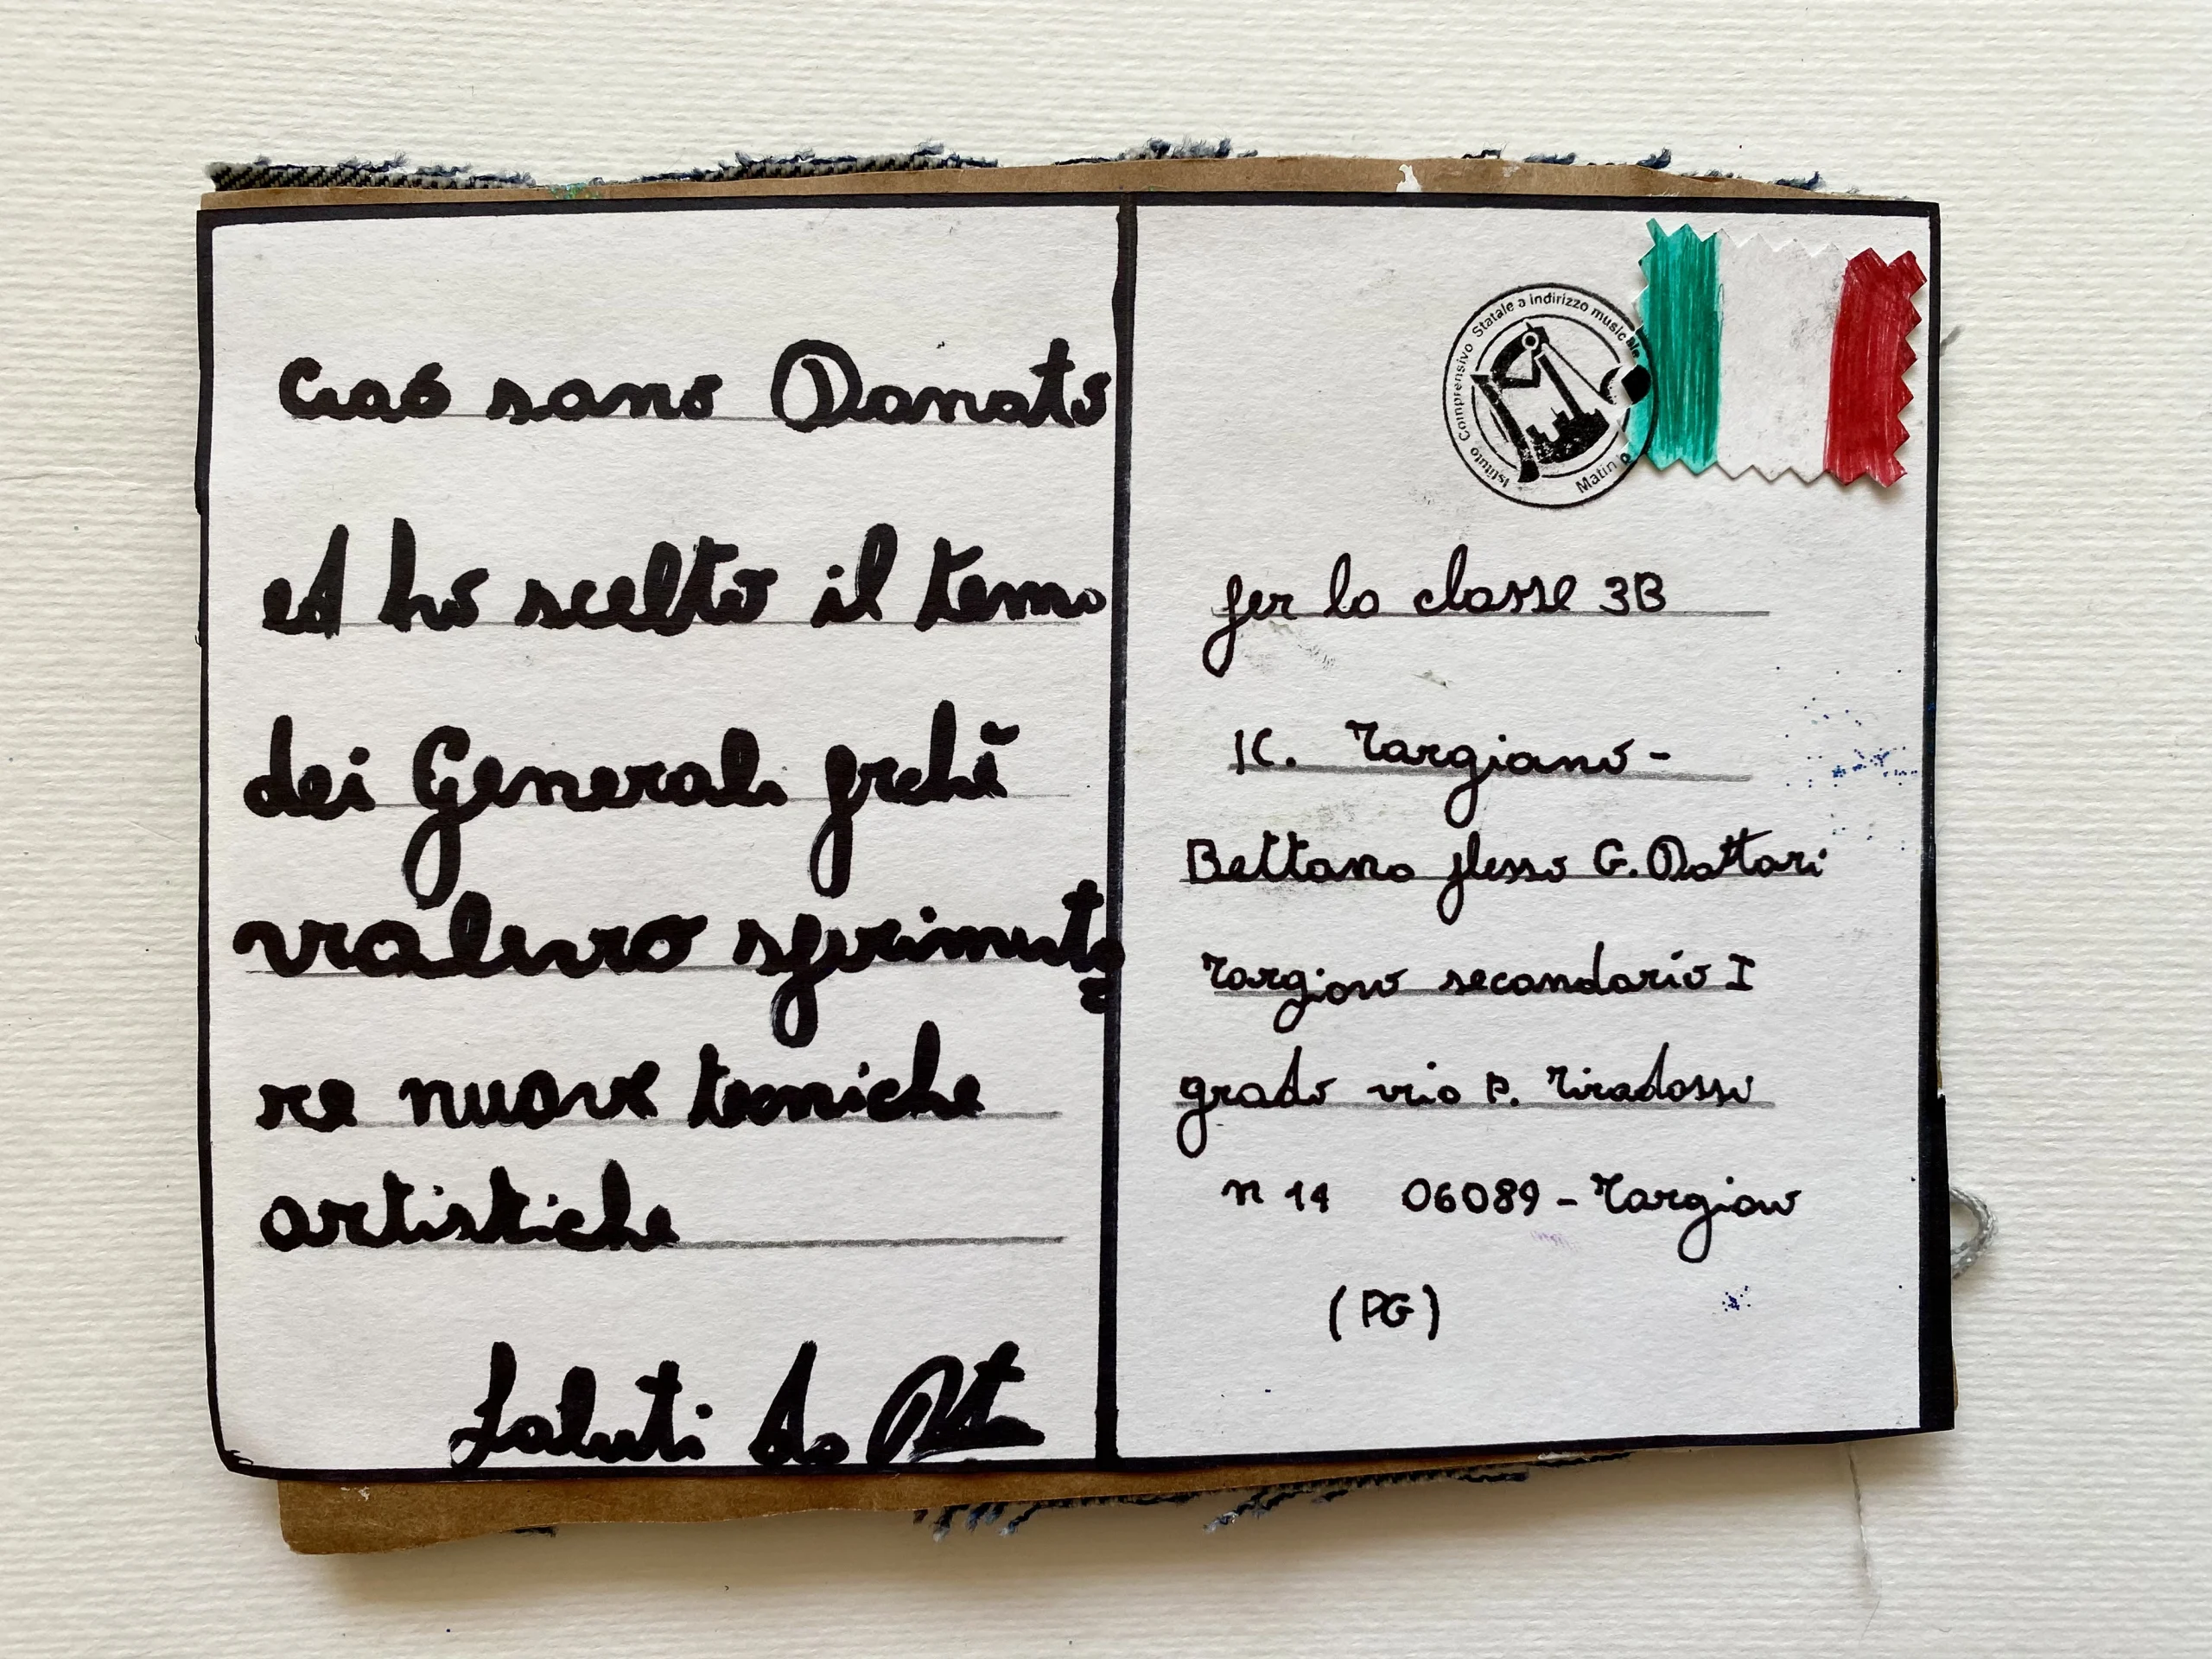 Ciaó sono Donato
ed ho scelto il tema
dei Generali perché
volevo sperimenta
re nuove tecniche
artistiche
Saluti da
Istituto Comprensivo Statale a indirizzo musicale
Matino
per la classe 3B
IC. Torgiano-
Bettona plesso G. Dottori
Torgiano secondario I
grado via P. Tiradossi
n 14 06089 - Torgiano
(PG)